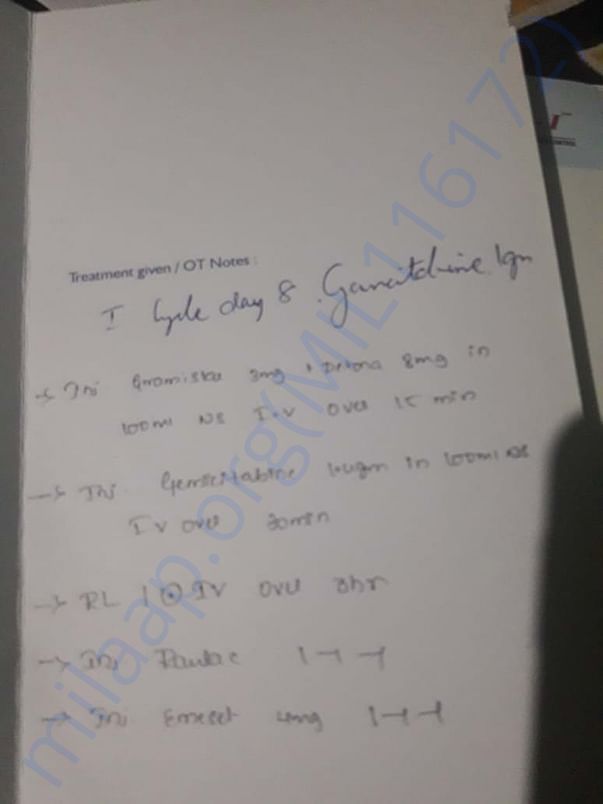 Treatment given / OT Notes :
I Cycle day 8. Gemcitabine 1gm
→ Inj 3mg + Dexona 8mg in
100ml NS I.V over 15 min
→ Inj. Gemcitabine in 100ml NS
IV over 30min
→ RL 1 IV over 3hr
→ Inj Pantac 1-1-1
→ Inj Emeset 4mg 1-1-1
milaap.org(MIL1161172)